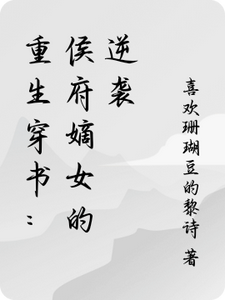 重生穿书：
侯府嫡女的
逆袭
喜欢珊瑚豆的黎诗 著